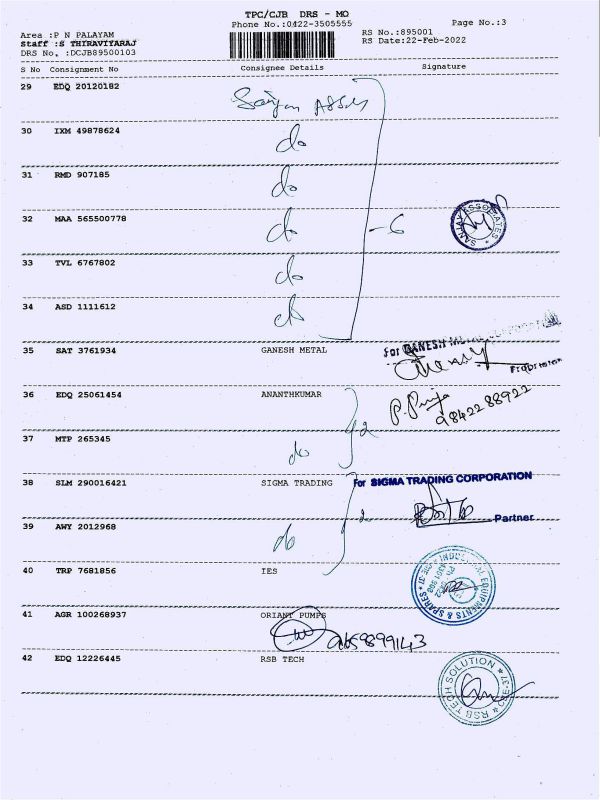 TPC/CJB DRS - MO
Phone No.:0422-3505555
Page No.:3
Area :P N PALAYAM
RS No.:895001
Staff :S THIRAVIYARAJ
RS Date:22-Feb-2022
DRS No. :DCJB89500103
S No Consignment No Consignee Details Signature
29 EDQ 20120182
30 IXM 49878624 do
31 RMD 907185 do
32 MAA 565500778 do - 6
SANJAY ASSOCIATES
33 TVL 6767802 do
34 ASD 1111612 do
35 SAT 3761934 GANESH METAL
For GANESH METAL CORPORATION
Proprietor
36 EDQ 25061454 ANANTHKUMAR
P. Priya
98422 88922
37 MTP 265345 do 2
38 SLM 290016421 SIGMA TRADING
For SIGMA TRADING CORPORATION
Partner
39 AWY 2012968 do 2
40 TRP 7681856 IES
EQUIPMENTS & SPARES
41 AGR 100268937 ORIANT PUMPS
42 EDQ 12226445 RSB TECH
RSB TECH SOLUTION